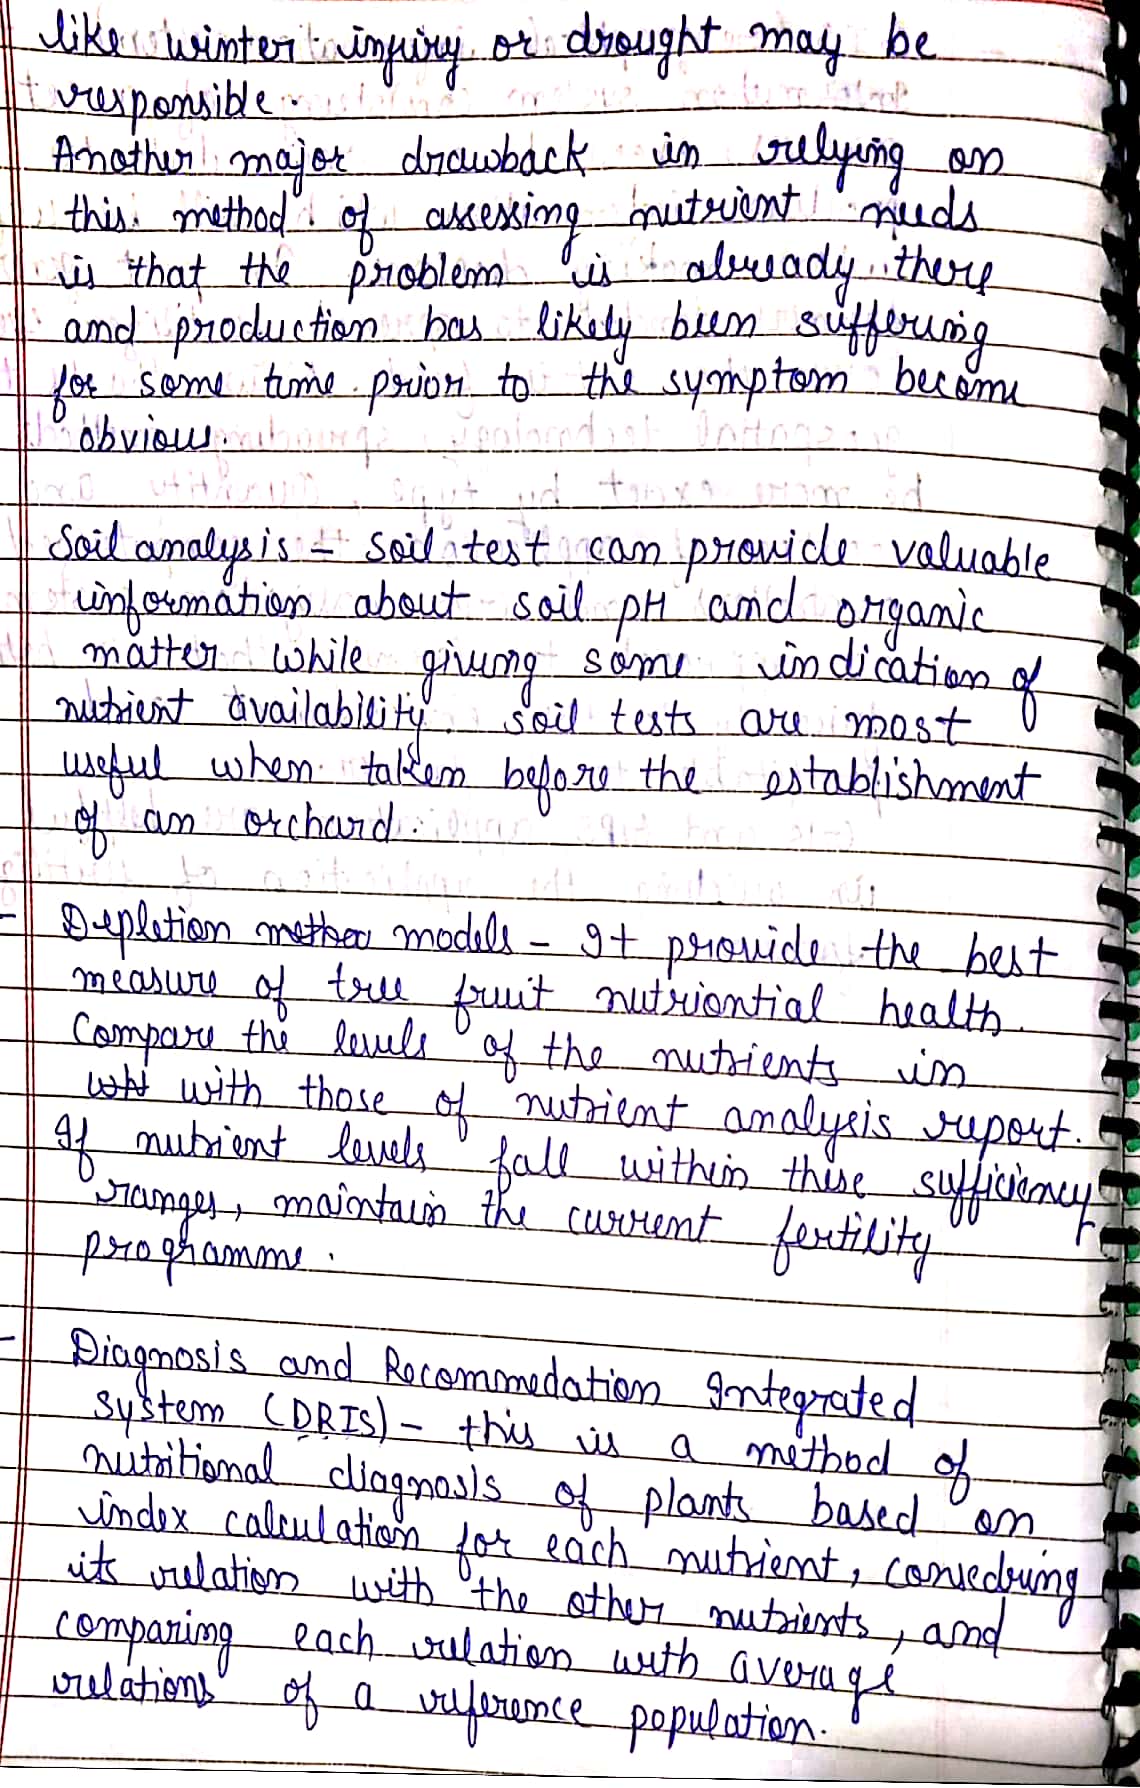 like winter injury or drought may be
responsible.
Another major drawback in relying on
this method of assessing nutrient needs
is that the problem is already there
and production has likely been suffering
for some time prior to the symptom become
obvious.
Soil analysis - Soil test can provide valuable
information about soil pH and organic
matter while giving some indication of
nutrient availability. soil tests are most
useful when taken before the establishment
of an orchard.
- Depletion models - It provide the best
measure of tree fruit nutriontial health.
Compare the levels of the nutrients in
with those of nutrient analysis report.
If nutrient levels fall within these sufficiency
ranges, maintain the current fertility
programme.
- Diagnosis and Recommedation Integrated
System (DRIS) - this is a method of
nutritional diagnosis of plants based on
index calculation for each nutrient, consedring
its relation with the other nutrients, and
comparing each relation with average
relations of a reference population.